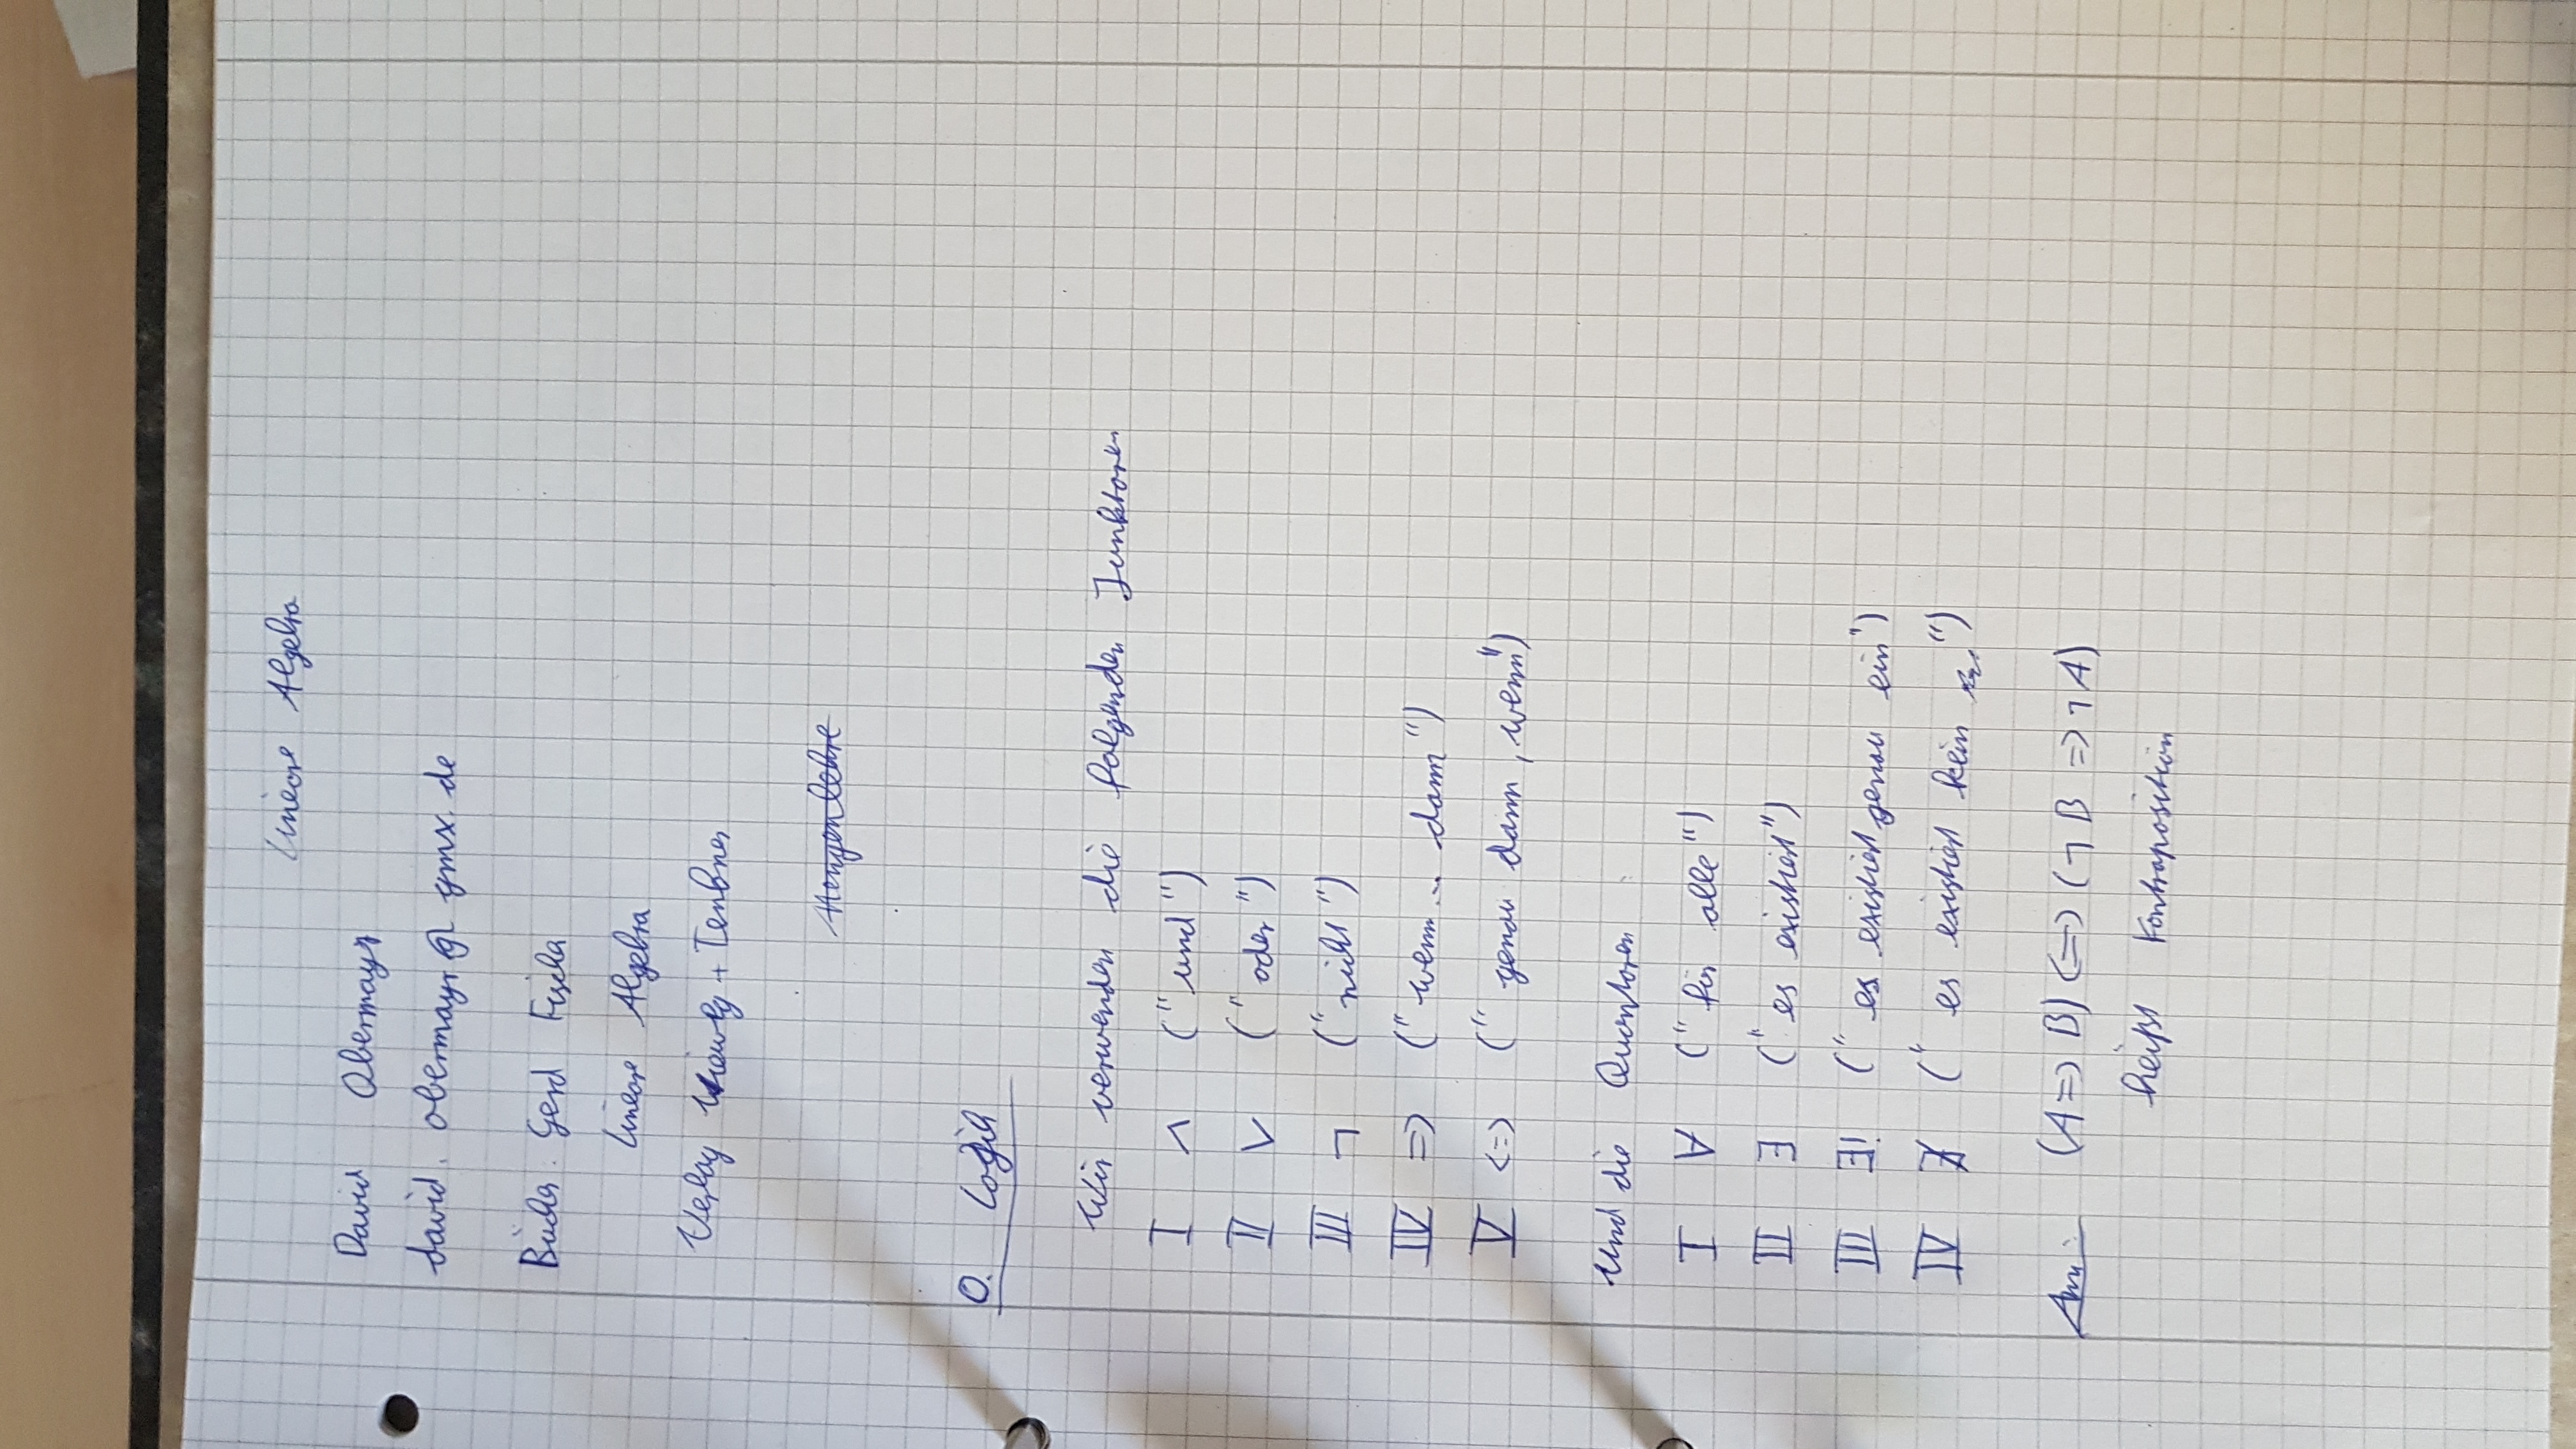 Lineare Algebra
David Obermayr
david.obermayr@gmx.de
Bücher: Gerd Fischer
Lineare Algebra
Verlag Vieweg + Teubner
Mengenlehre
0. Logik
Wir verwenden die folgenden Junktoren
I ∧ ("und")
II ∨ ("oder")
III ¬ ("nicht")
IV => ("wenn... dann")
V <=> ("genau dann, wenn")
Und die Quantoren:
I ∀ ("für alle")
II ∃ ("es existiert")
III ∃! ("es existiert genau ein")
IV ∄ ("es existiert kein")
Anm:  (A => B) <=> (¬B => ¬A)
heißt Kontraposition